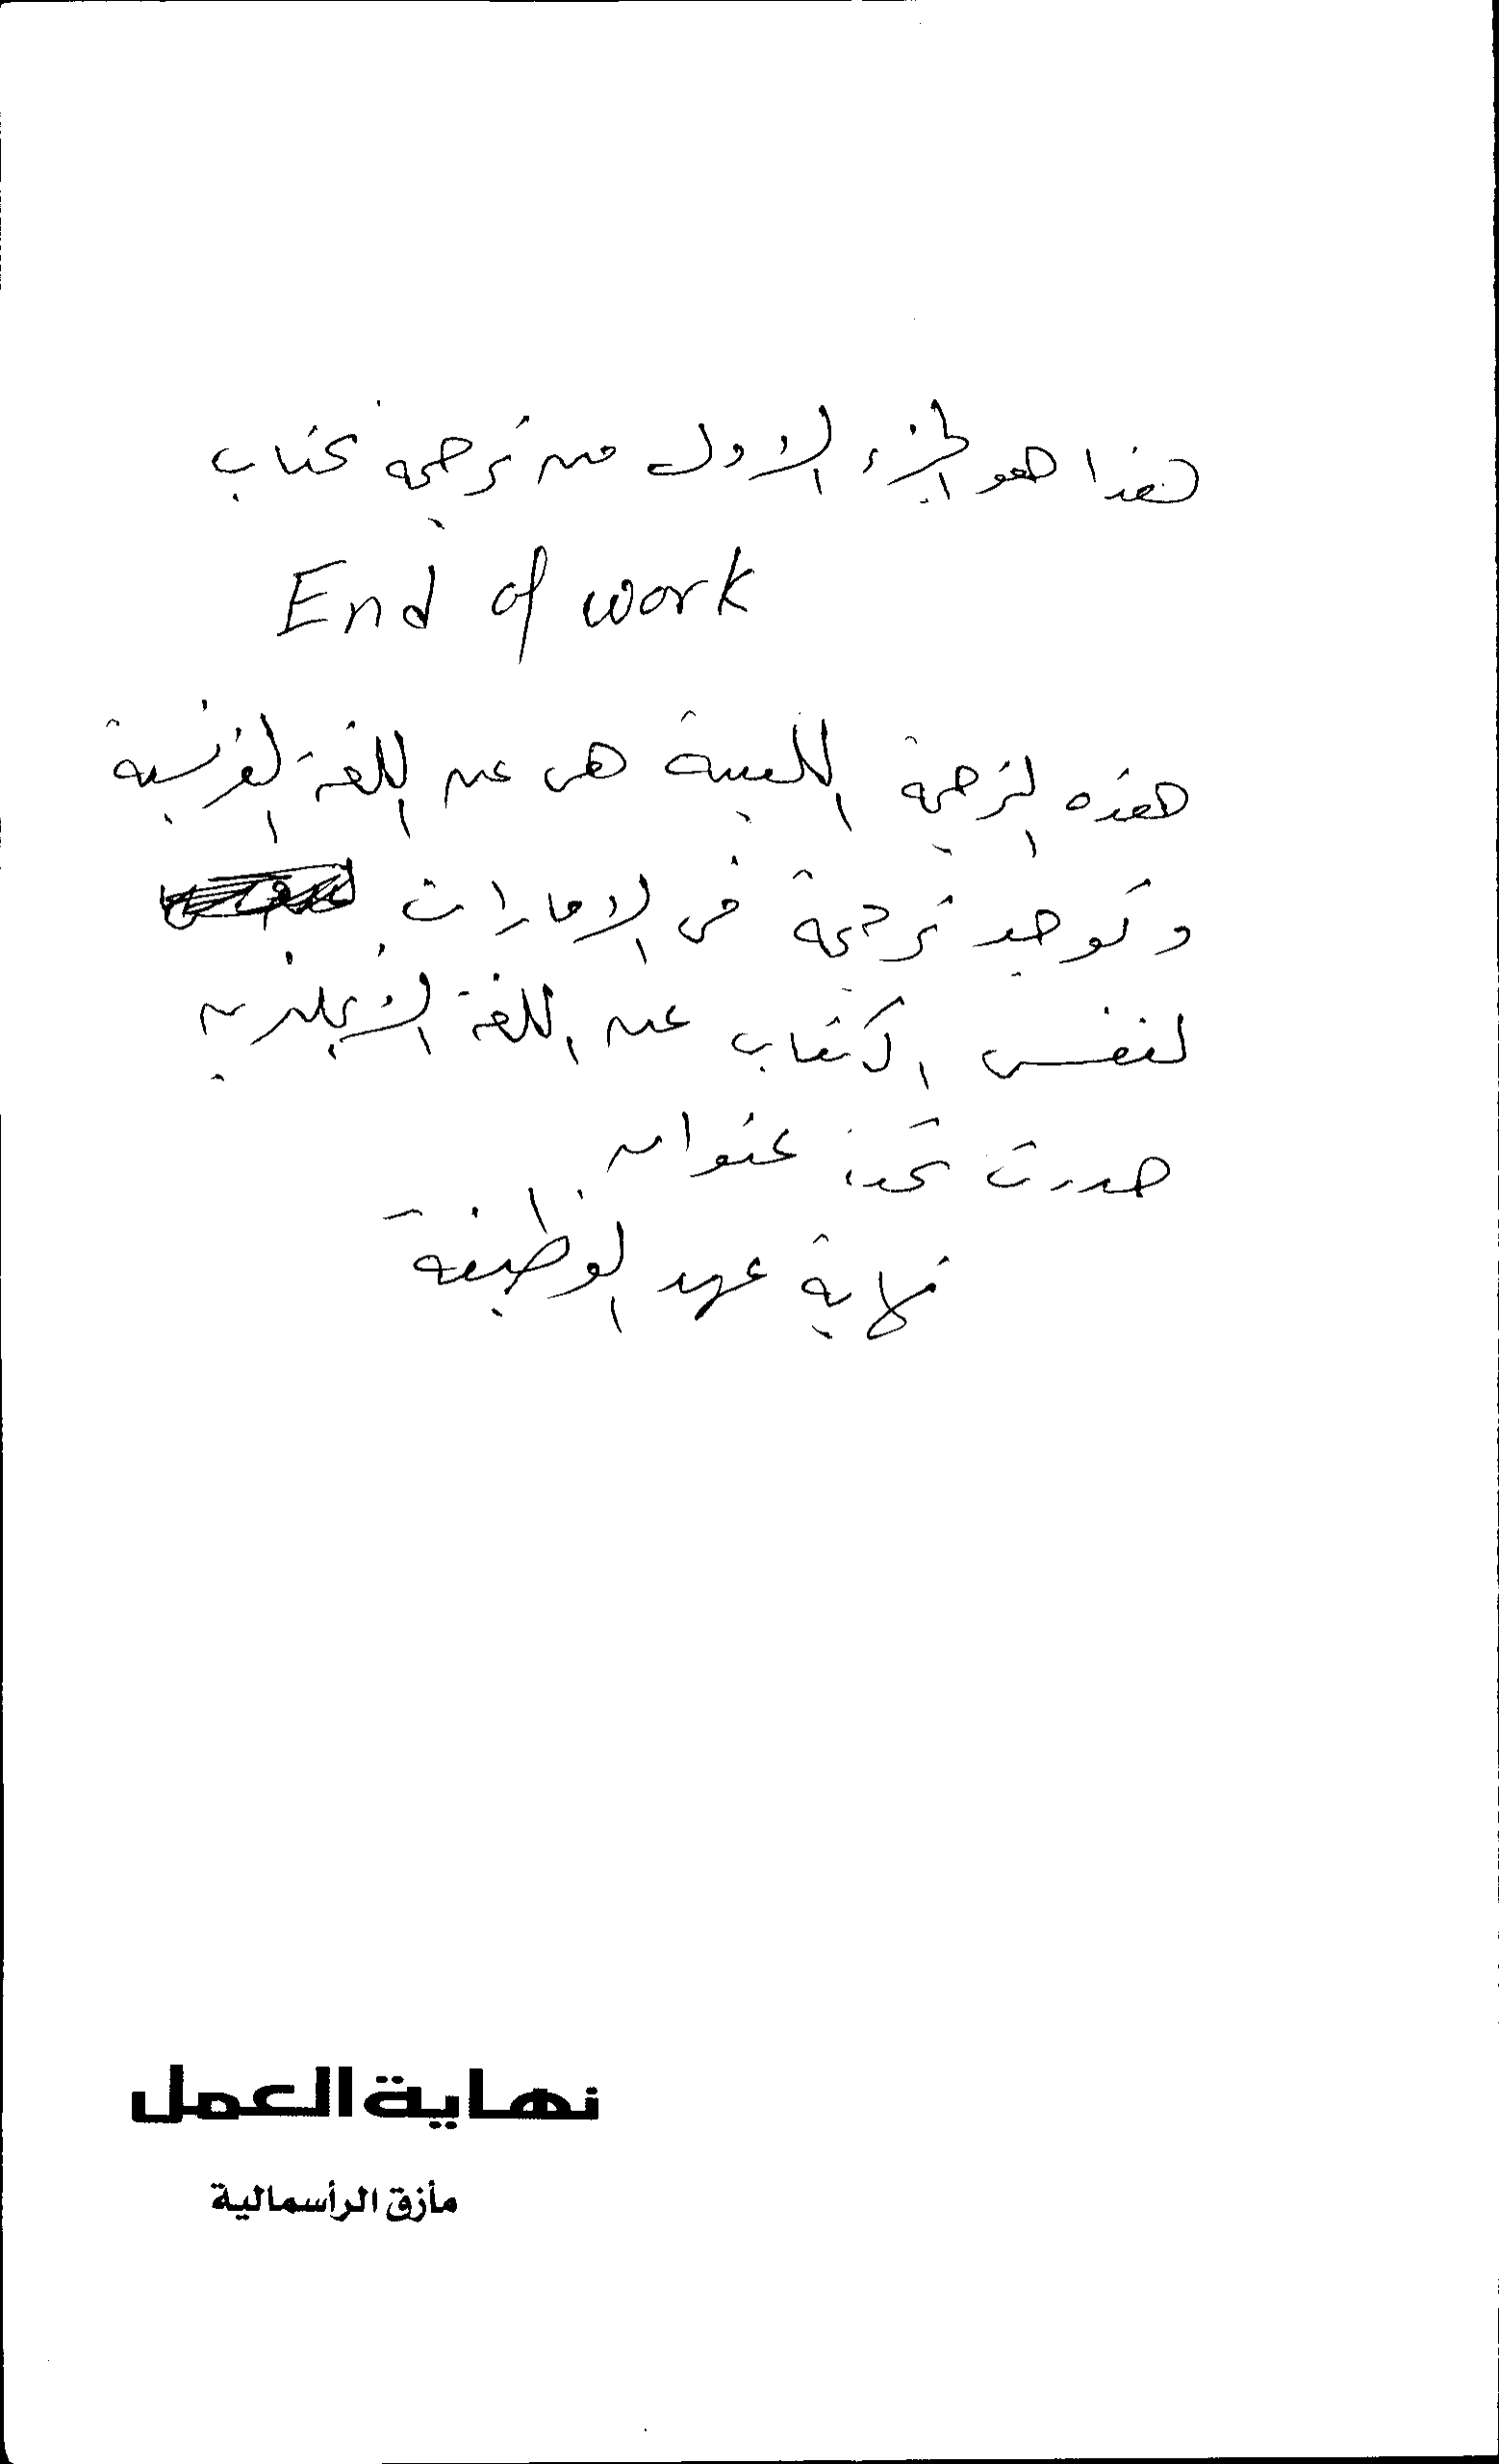 هذا هو الجزء الاول من ترجمة كتاب
End of work
هذه الترجمة الليبية هى عن اللغة الفرنسية
وتوجد ترجمة فى الامارات
لنفس الكتاب عن اللغة الانجليزية
صدرت تحت عنوان
نهاية عهد الوظيفة
نهاية العمل
مأزق الرأسمالية